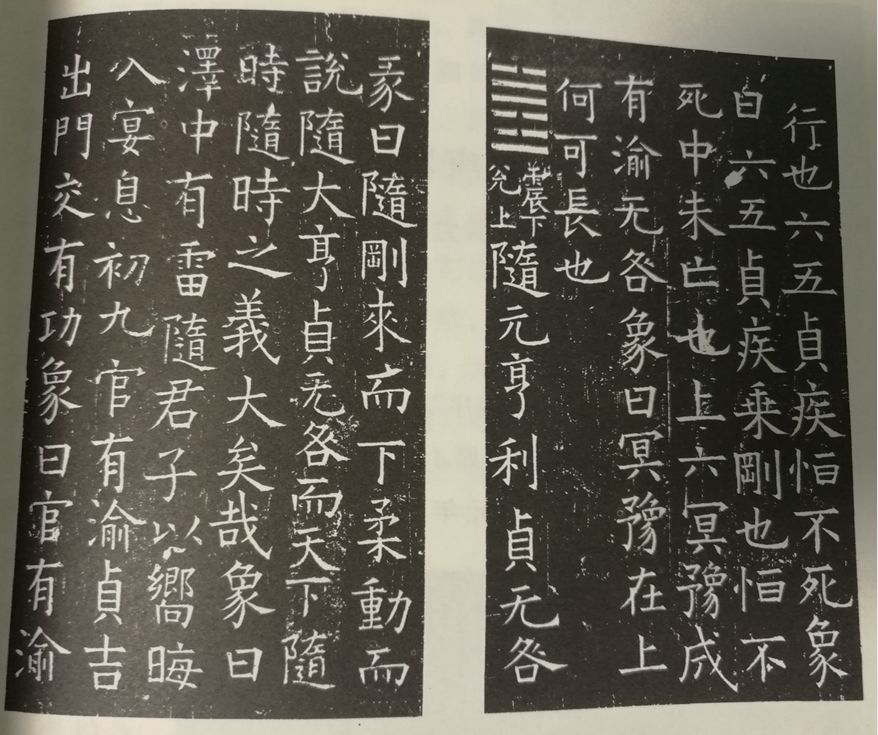 行也六五貞疾恒不死象
曰六五貞疾乗剛也恒不
死中未亡也上六冥豫成
有渝无咎象曰冥豫在上
何可長也
䷐震下兊上隨元亨利貞无咎
彖曰隨剛來而下柔動而
說隨大亨貞无咎而天下隨
時隨時之義大矣哉象曰
澤中有雷隨君子以嚮晦
入宴息初九官有渝貞吉
出門交有功象曰官有渝